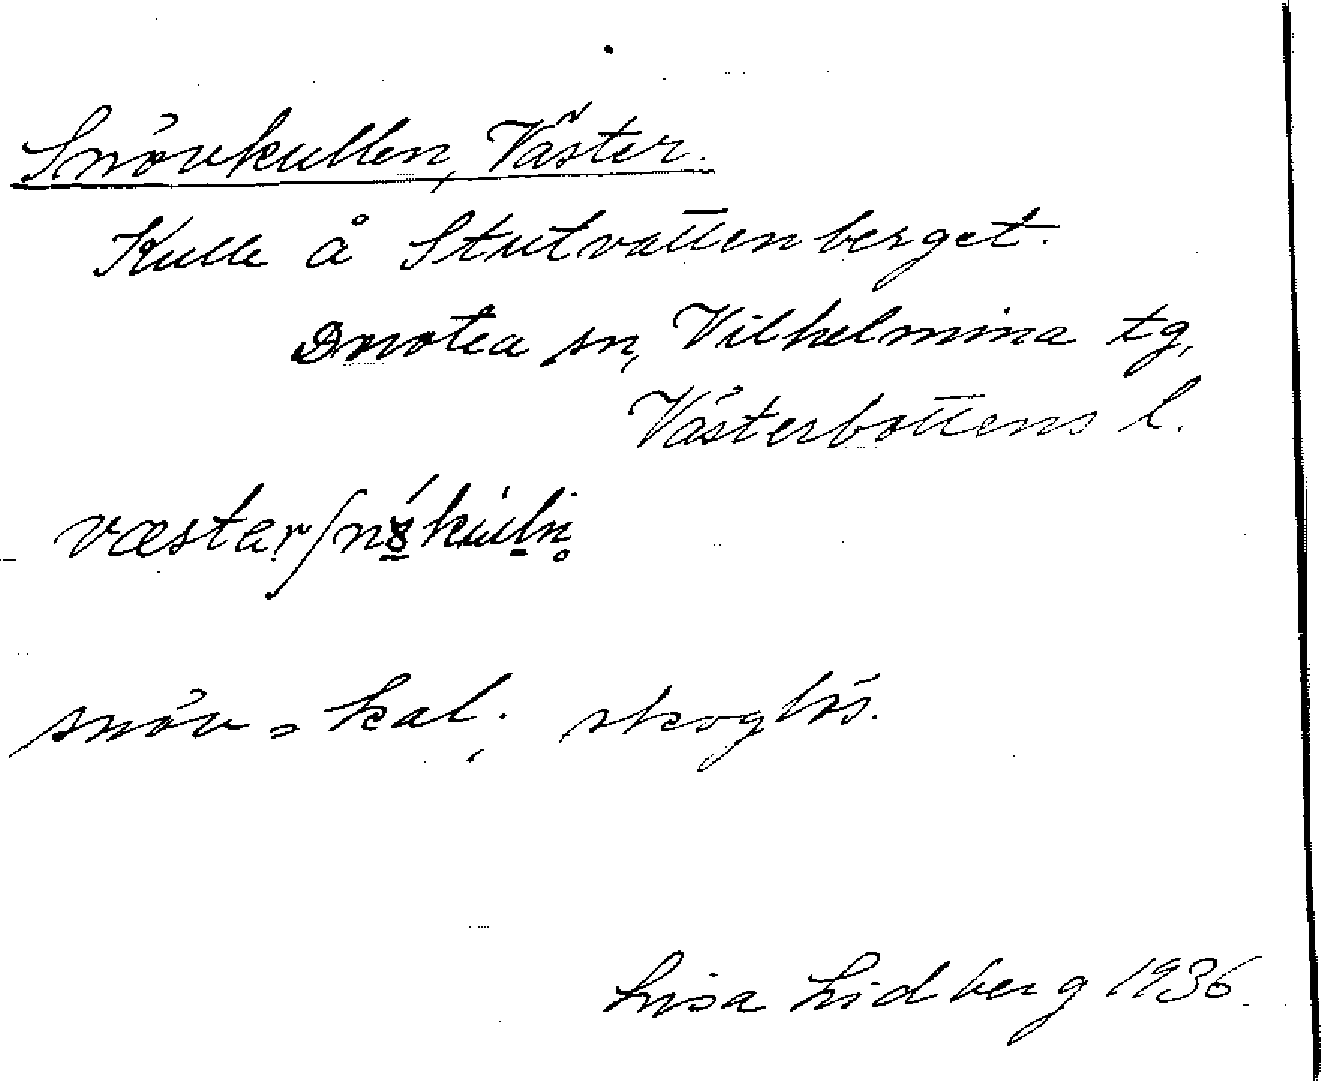 Snövkullen, Väster.
Kulle å Stutvattenberget.
Dorotea sn, Vilhelmina tg,
Västerbottens l.
snöv = kal, skoglös.
Lisa Lidberg 1936.